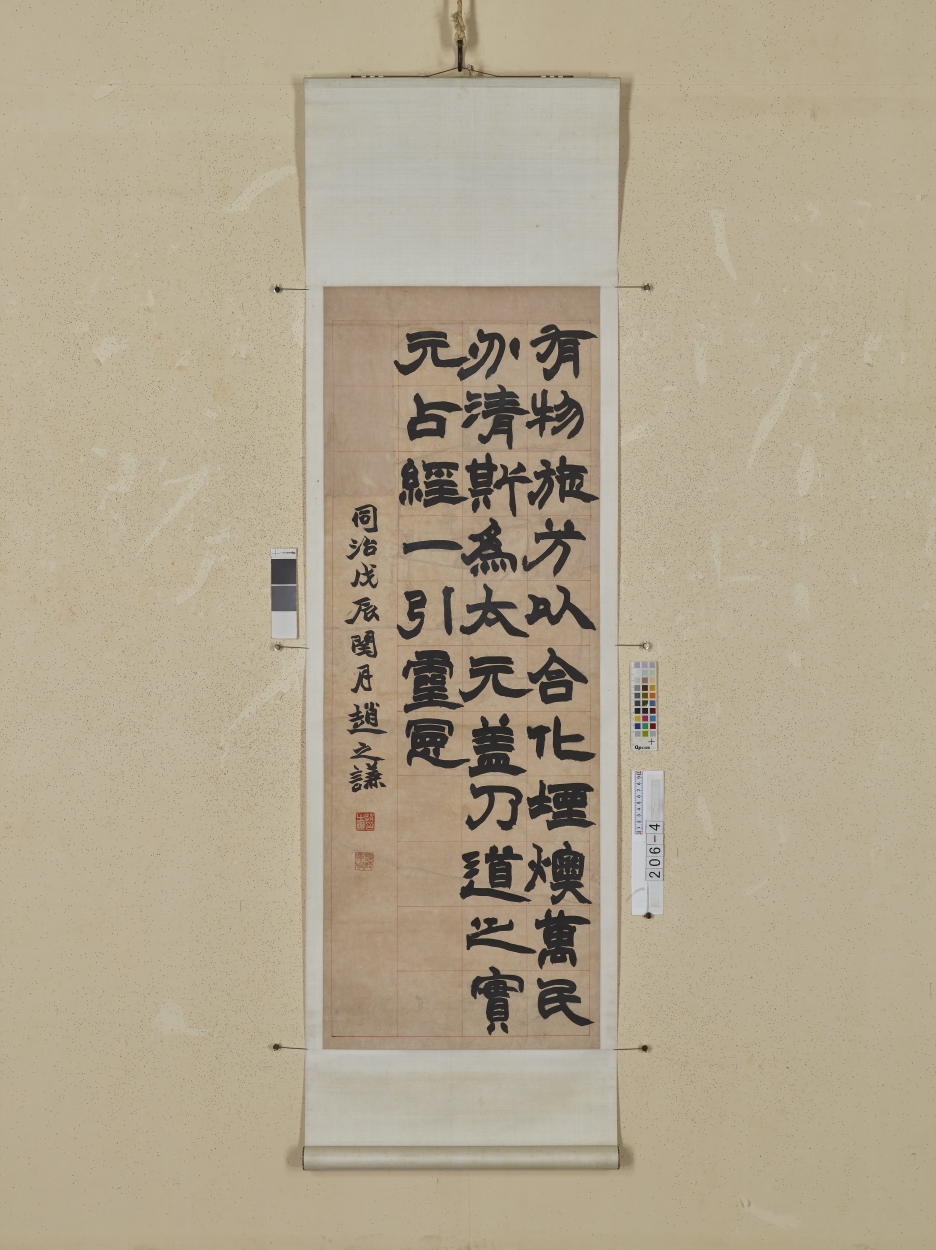 有物施芳以合化堙燠萬民
勿清斯為太元蓋乃道之實
元占經一引靈
同治戊辰閏月趙之謙
206-4